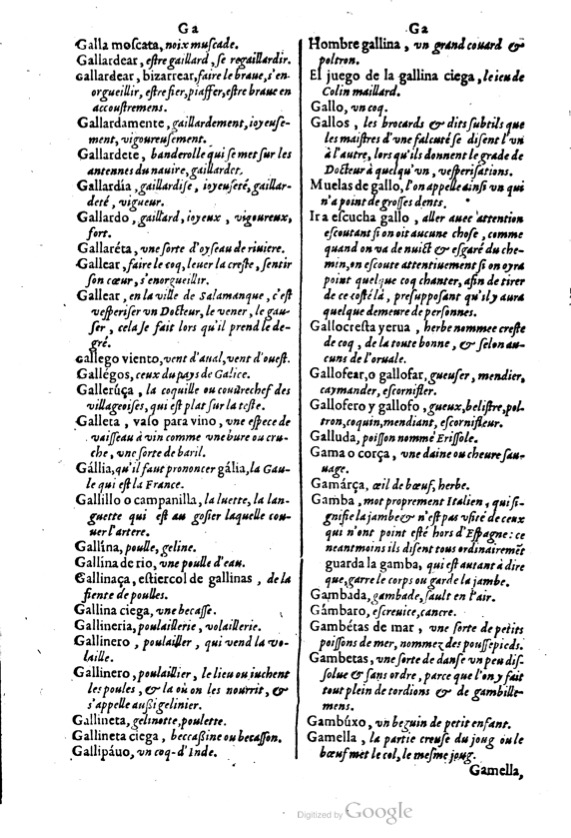 Ga
Galla moscata, noix muscade.
Gallardear, estre gaillard, se regaillardir.
Gallardear, bizarrear, faire le braue, s'en-
orgueillir, estre fier, piaffer, estre braue en
accoustremens.
Gallardamente, gaillardement, ioyeuse-
ment, vigoureusement.
Gallardete, banderolle qui se met sur les
antennes du nauire, gaillardet.
Gallardía, gaillardise, ioyeuseté, gaillar-
deté, vigueur.
Gallardo, gaillard, ioyeux, vigoureux,
fort.
Gallaréta, vne sorte d'oyseau de riuiere.
Gallear, faire le coq, leuer la creste, sentir
son cœur, s'enorgueillir.
Gallear, en la ville de Salamanque, c'est
vesperiser vn Docteur, le vener, le gau-
ser, cela se fait lors qu'il prend le de-
gré.
Gallego viento, vent d'aual, vent d'ouest.
Gallégos, ceux du pays de Galice.
Gallerúça, la coquille ou couurechef des
villageoises, qui est plat sur la teste.
Galleta, vaso para vino, vne espece de
vaisseau à vin comme vne bure ou cru-
che, vne sorte de baril.
Gállia, qu'il faut prononcer gália, la Gau-
le qui est la France.
Gallillo o campanilla, la luette, la lan-
guette qui est au gosier laquelle cou-
uer l'artere.
Gallína, poulle, geline.
Gallína de rio, vne poulle d'eau.
Gallinaça, estiercol de gallinas, de la
fiente de poulles.
Gallina ciega, vne becasse.
Gallineria, poulaillerie, volaillerie.
Gallinero, poulailler, qui vend la vo-
laille.
Gallinero, poulaillier, le lieu ou iuchent
les poules, & la où on les nourrit, &
s'appelle aussi gelinier.
Gallineta, gelinotte, poulette.
Gallineta ciega, beccassine ou becasson.
Gallipáuo, vn coq-d'Inde.
Ga
Hombre gallina, vn grand couard &
poltron.
El juego de la gallina ciega, le ieu de
Colin maillard.
Gallo, vn coq.
Gallos, les brocards & dits subtils que
les maistres d'vne falculté se disent l'vn
à l'autre, lors qu'ils donnent le grade de
Docteur à quelqu'vn, vesperisations.
Muelas de gallo, l'on appelle ainsi vn qui
n'a point de grosses dents.
Ir a escucha gallo, aller auec attention
escoutant si on oit aucune chose, comme
quand on va de nuict & esgaré du che-
min, on escoute attentiuement si on oyra
point quelque coq chanter, afin de tirer
de ce costé là, presupposant qu'il y aura
quelque demeure de personnes.
Gallocresta yerua, herbe nommee creste
de coq, de la toute bonne, & selon au-
cuns de l'oruale.
Gallofear, o gallofar, gueuser, mendier,
caymander, escornifler.
Gallofero y gallofo, gueux, belistre, pol-
tron, coquin, mendiant, escornifleur.
Galluda, poisson nommé Erissole.
Gama o corça, vne daine ou cheure sau-
uage.
Gamárça, œil de bœuf, herbe.
Gamba, mot proprement Italien, qui si-
gnifie la iambe & n'est pas vsité de ceux
qui n'ont point esté hors d'Espagne: ce
neantmoins ils disent tous ordinairemēt
guarda la gamba, qui est autant à dire
que, garre le corps ou garde la jambe.
Gambada, gambade, sault en l'air.
Gámbaro, escreuice, cancre.
Gambétas de mar, vne sorte de petits
poissons de mer, nommez des poussepieds.
Gambetas, vne sorte de danse vn peu dis-
solue & sans ordre, parce que l'on y fait
tout plein de tordions & de gambille-
mens.
Gambúxo, vn beguin de petit enfant.
Gamella, la partie creuse du joug où le
bœuf met le col, le mesme joug.
Gamella,
Digitized by Google